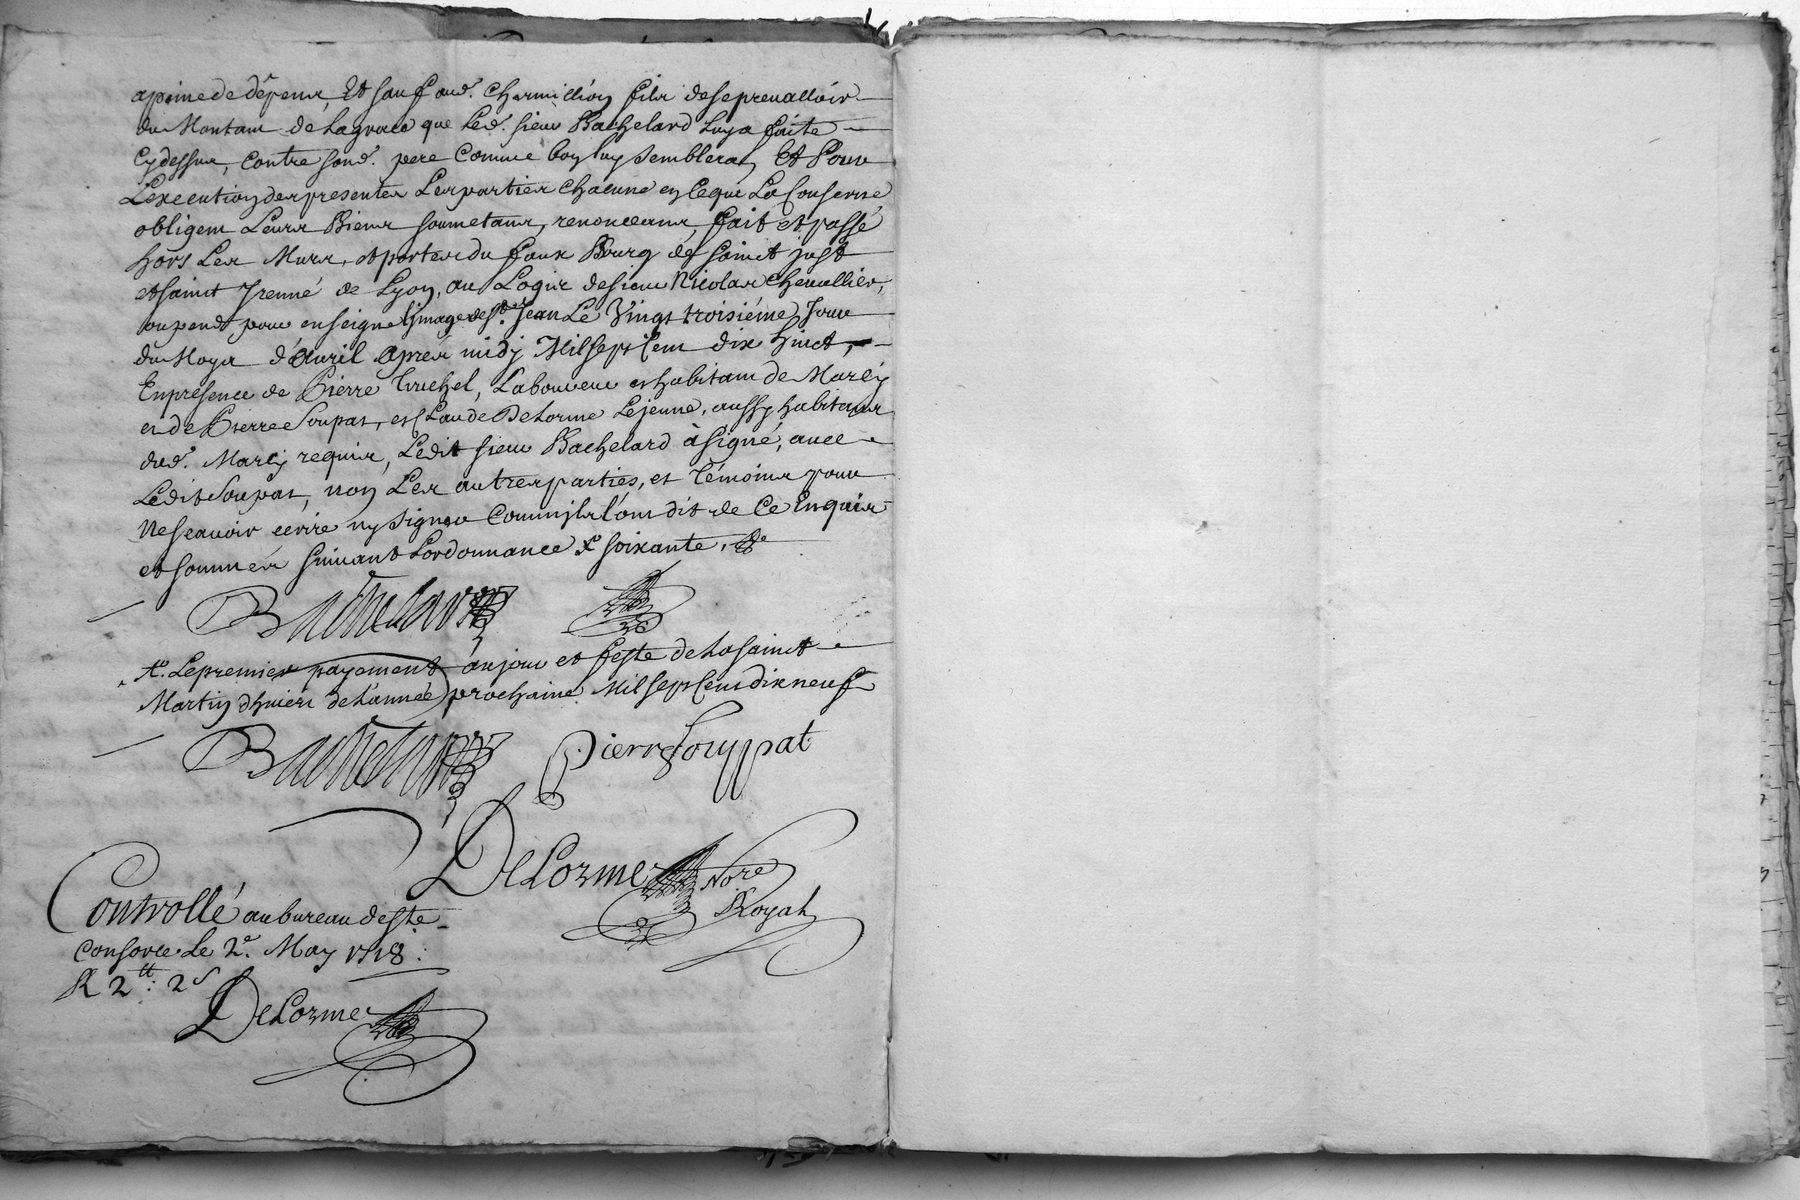 apeine de dépens, Et sauf aud. Charmillion fils de se prevalloir
du Montant de Lagrace que Led. sieur Bachelard Luy a faite
Cydessus, Contre sond. pere Comme bon luy semblera, Et Pour
L'execution des presentes Les parties Chacune en Ceque La Conserne
obligent Leurs Biens soumetans, renonceans, fait et passé
hors Les Murs, et portes du faux Bourg de sainct just
et sainct Jrenné de Lyon, au Logis de sieur Nicolas Chevallier,
ou pend pour enseigne l'jmage de St. Jean Le Vingt troisiéme Jour
du Moys d'Avril aprés midy Mil sept Cent dix huict,
En presence de Pierre Truchel, Laboureur et habitant de Marcy
et de Pierre Soupat, et Claude DeLorme Lejeune, aussy habitans
dud. Marcy requis, Ledit sieur Bachelard à signé, avec
Ledit Soupat, non Les autres parties, et Témoins pour
Ne scavoir ecrire ny signer Comm'jls l'ont dit de Ce Enquis
et sommés suivant Lordonnance x soixante,
Bachelard
x. Le premier payement au jour et feste de la sainct
Martin d'hivers de L'année prochaine Mil sept Cens dix neuf
Bachelard Pierre Souppat
DeLorme Nore
Royal
Controllé au bureau de Ste
Consorce Le 2e. May 1718
R 2tt: 2s
DeLorme